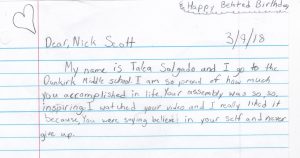 & Happy Belated Birthday
Dear, Nick Scott 3/9/18
My name is Talea Salgado and I go to the
Dunkirk Middle school. I am so proud of how much
you accomplished in life. Your assembly was so, so,
inspiring. I watched your video and I really liked it
because you were saying believe in your self and never
give up.